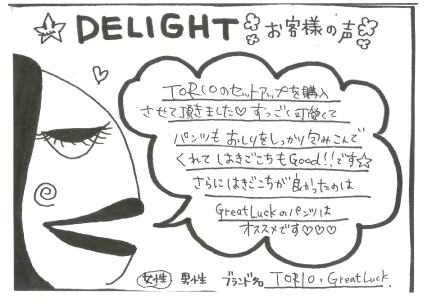 DELIGHT お客様の声
TORIOのセットアップを購入
させて頂きました♡ すっごく可愛くて
パンツも おしりをしっかり包みこんで
くれて はきごこちもGood!!です☆
さらにはきごこちが良かったのは
GreatLuckのパンツは
オススメです♡♡♡
女性 男性 ブランド名 TORIO・GreatLuck